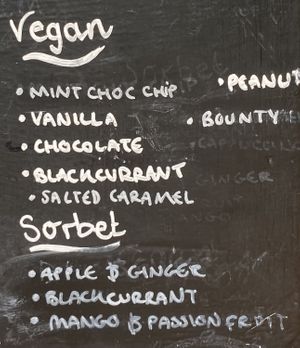 Vegan
• MINT CHOC CHIP
• VANILLA
• CHOCOLATE
• BLACKCURRANT
• SALTED CARAMEL
• PEANUT
• BOUNTY
Sorbet
• APPLE & GINGER
• BLACKCURRANT
• MANGO & PASSION FRUIT